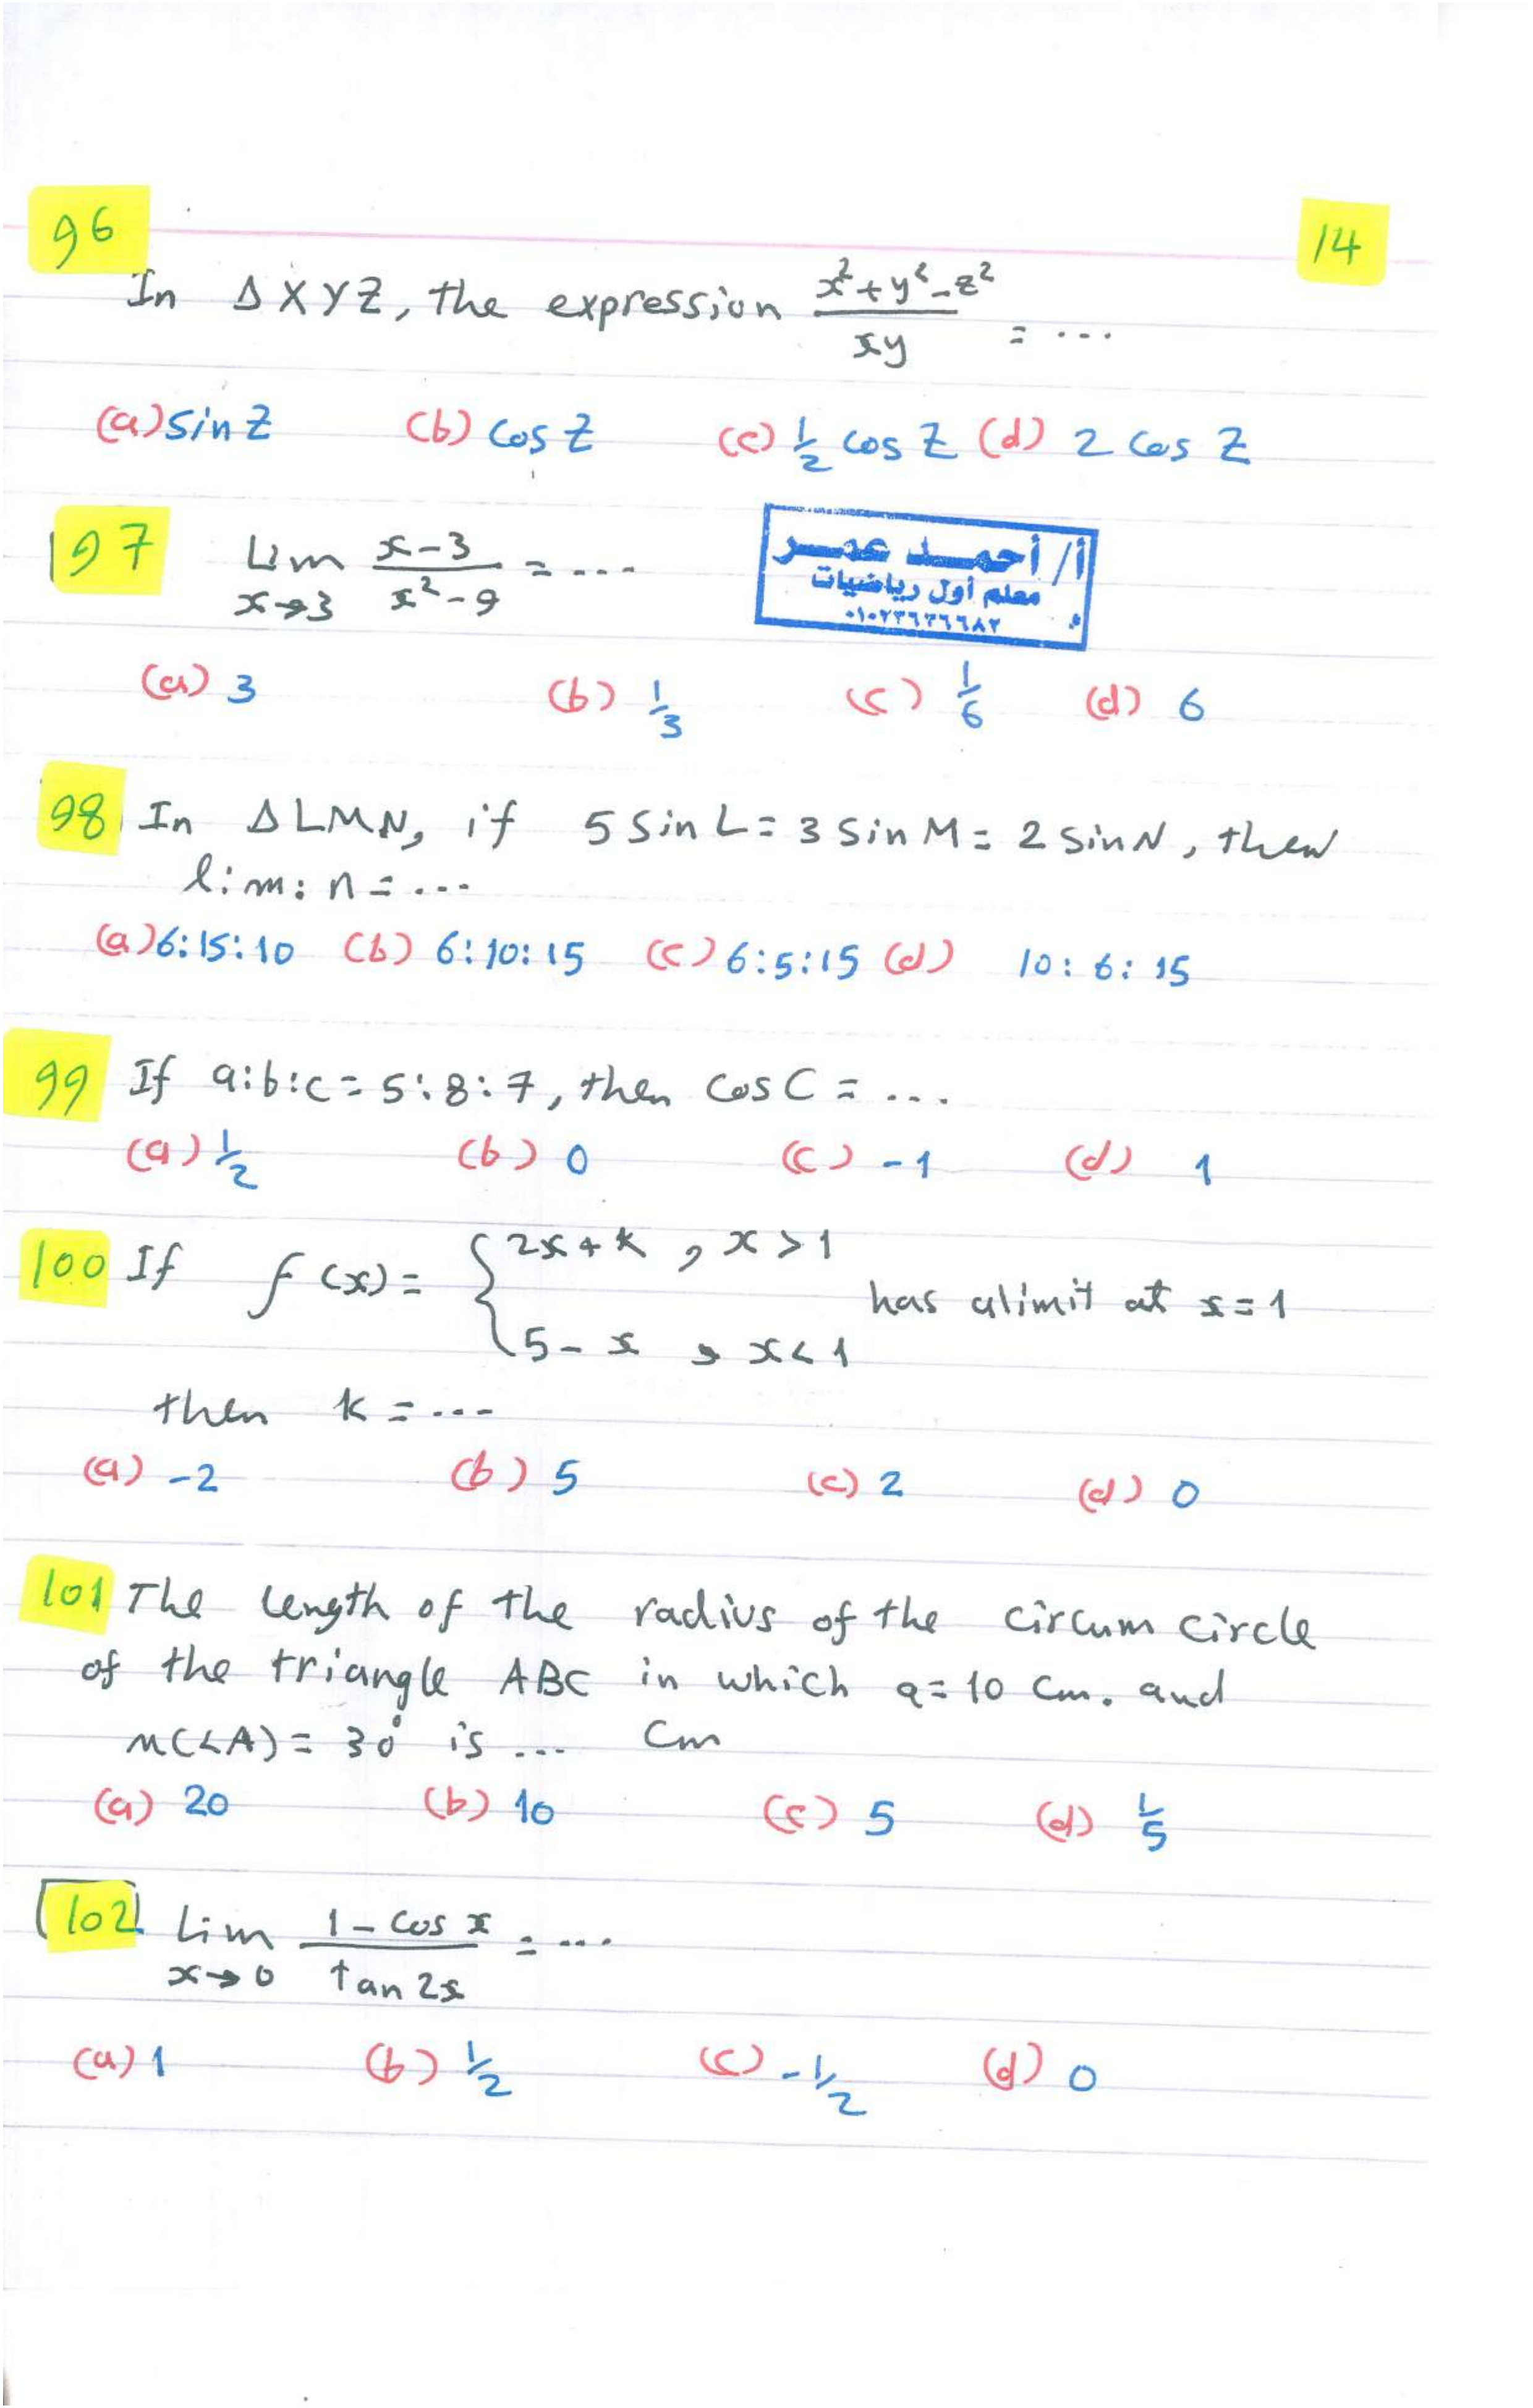 96
14
In ΔXYZ, the expression x²+y²-z² / xy = ...
(a) sin Z (b) cos Z (c) 1/2 cos Z (d) 2 cos Z
97 Lim x→3 x-3 / x²-9 = ...
أ/ أحمد عمر
معلم أول رياضيات
(a) 3 (b) 1/3 (c) 1/6 (d) 6
98 In ΔLMN, if 5 sin L = 3 sin M = 2 sin N, then
l:m:n = ...
(a) 6:15:10 (b) 6:10:15 (c) 6:5:15 (d) 10:6:15
99 If a:b:c = 5:8:7, then cos C = ...
(a) 1/2 (b) 0 (c) -1 (d) 1
100 If f(x) = { 2x+k , x>1
5-x , x<1
has a limit at x=1
then k = ...
(a) -2 (b) 5 (c) 2 (d) 0
101 The length of the radius of the circum circle
of the triangle ABC in which a = 10 cm. and
m(∠A) = 30° is ... cm
(a) 20 (b) 10 (c) 5 (d) 1/5
102 Lim x→0 1-cos x / tan 2x = ...
(a) 1 (b) 1/2 (c) -1/2 (d) 0